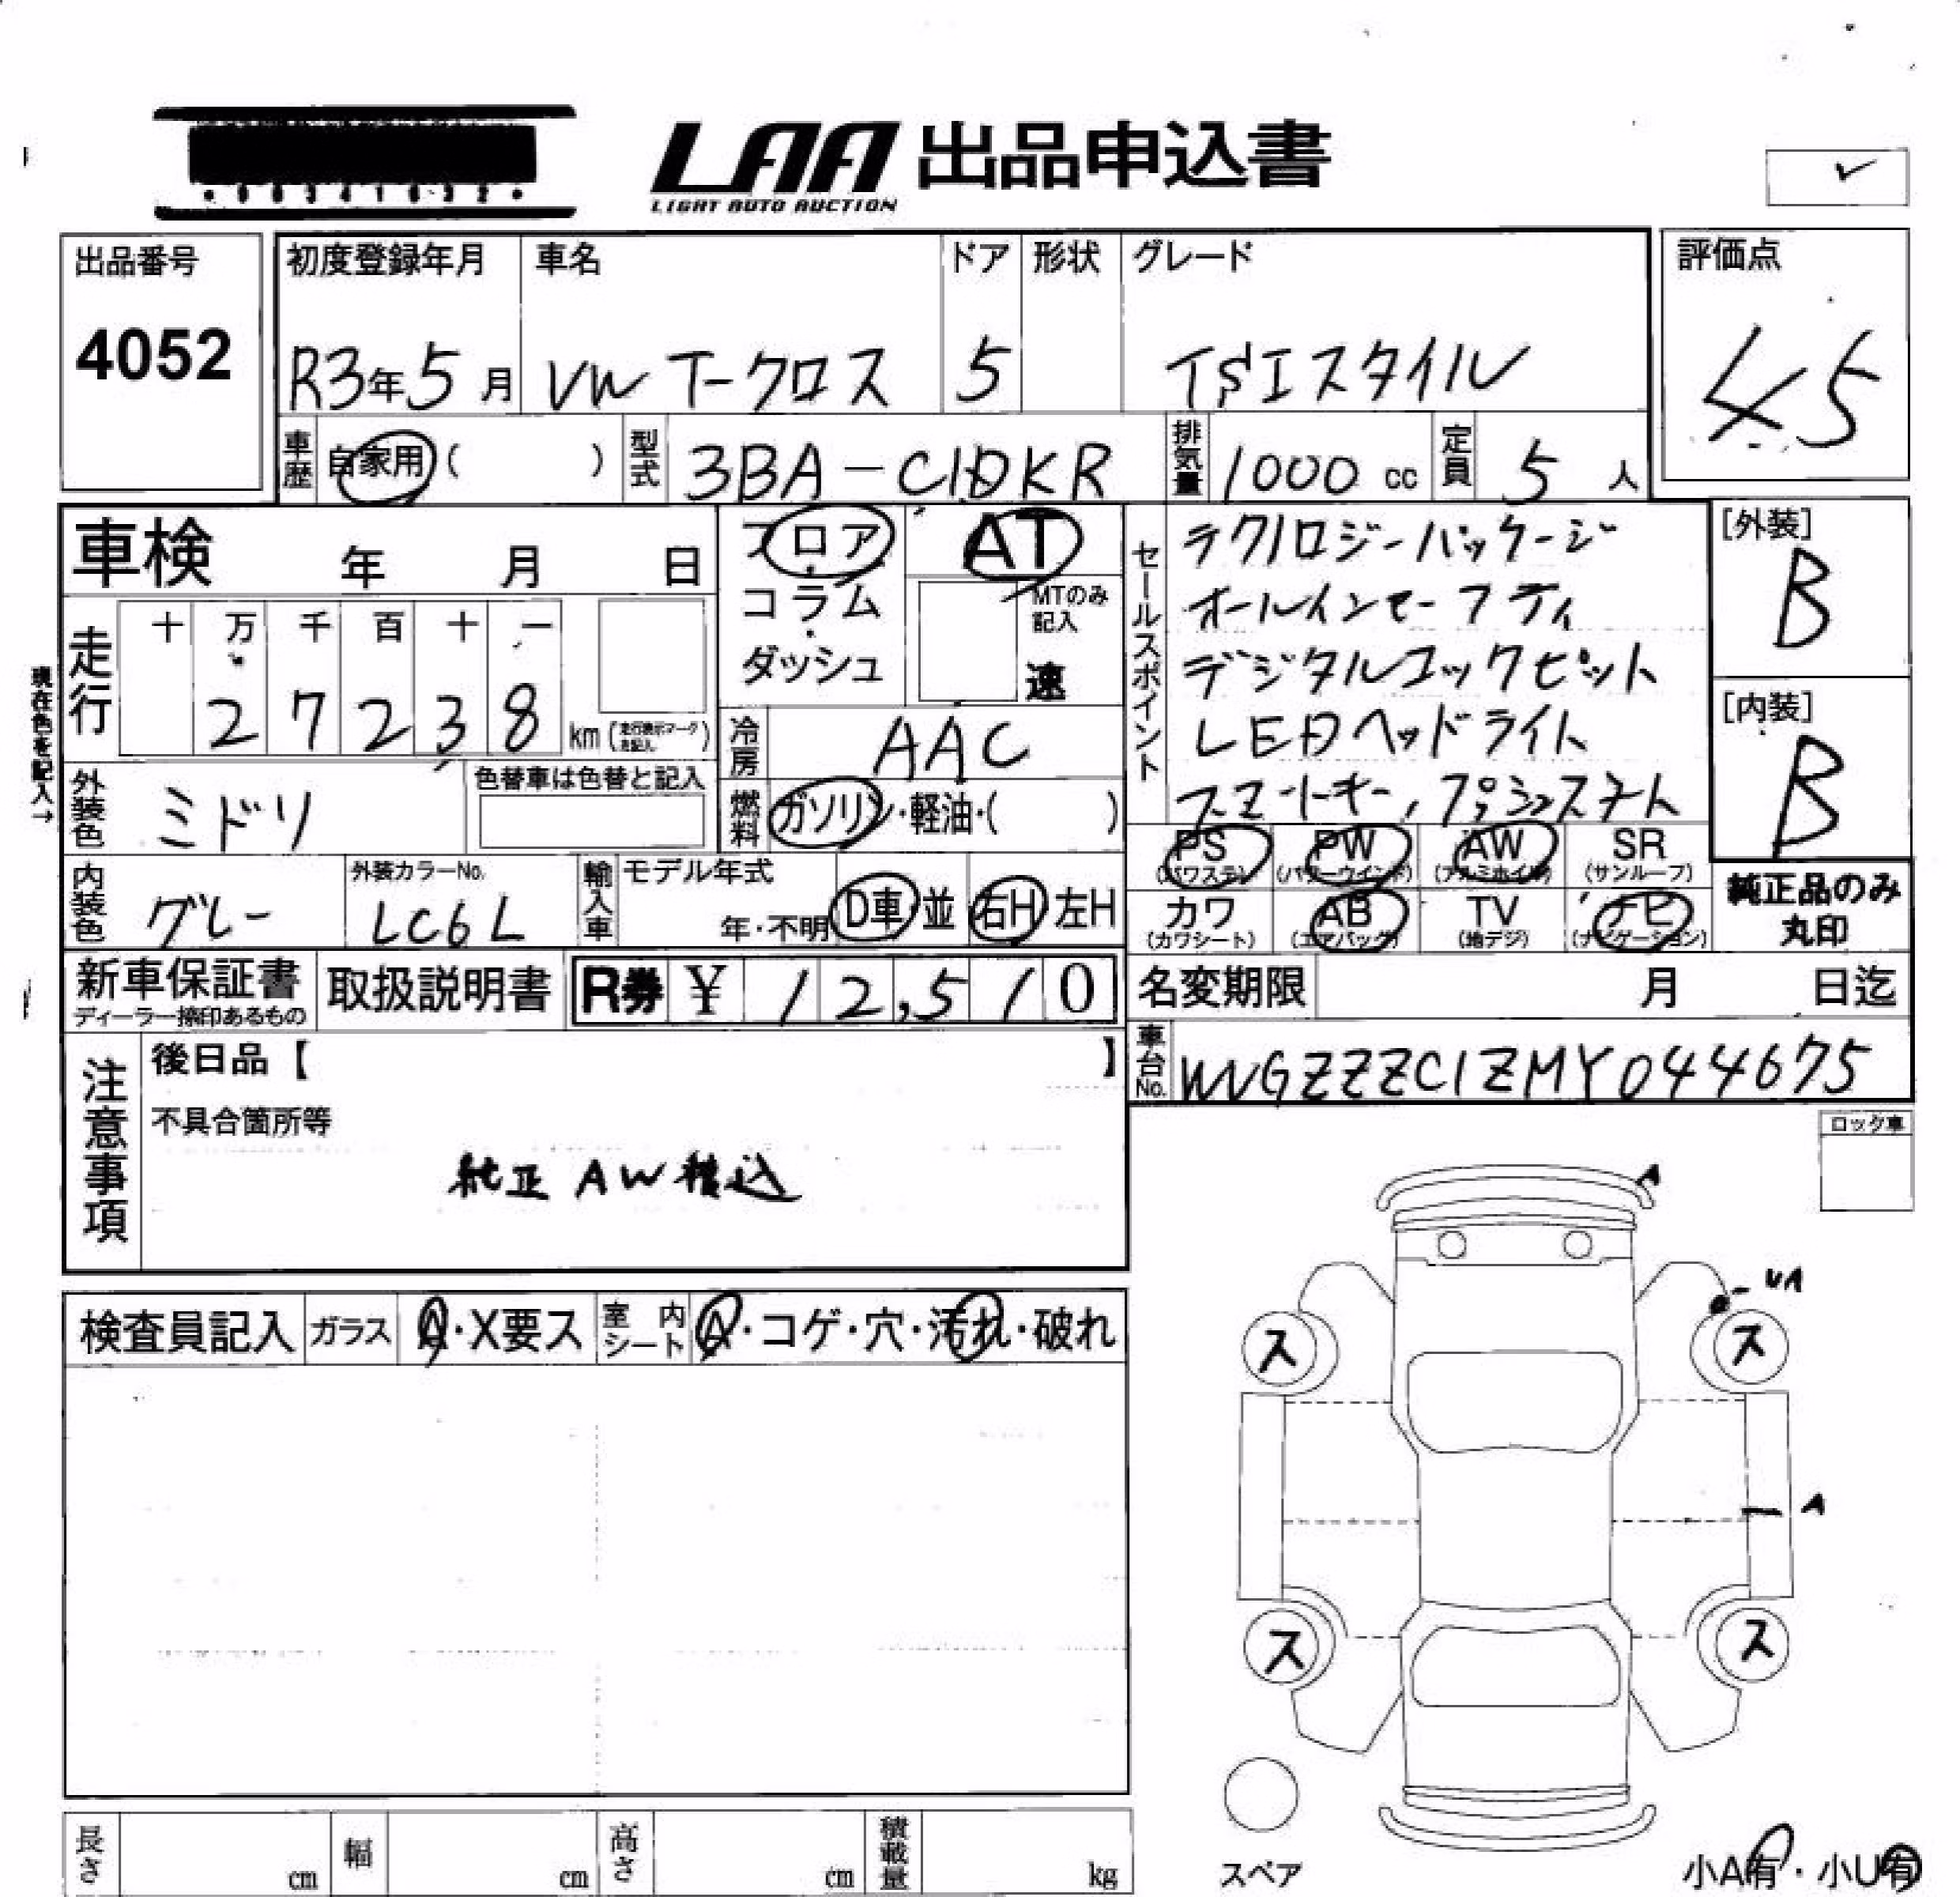 LAA 出品申込書
LIGHT AUTO AUCTION
出品番号
4052
初度登録年月 車名 ドア 形状 グレード
R3年5月 VW T-クロス 5 TSIスタイル
評価点
45
車歴 自家用 ( ) 型式 3BA-C1DKR 排気量 1000 cc 定員 5 人
車検 年 月 日
フロア・コラム・ダッシュ
AT
MTのみ記入
速
セールスポイント
テクノロジーパッケージ
オールインセーフティ
デジタルコックピット
LEDヘッドライト
スマートキー,プッシュスタート
[外装]
B
[内装]
B
現在色を記入→
走行 十 万 千 百 十 一
27238 km (走行表示マークを記入)
冷房 AAC
外装色 ミドリ 色替車は色替と記入
燃料 ガソリン・軽油・( )
PS (パワステ) PW (パワーウインド) AW (アルミホイル) SR (サンルーフ)
カワ (カワシート) AB (エアバッグ) TV (地デジ) ナビ (ナビゲーション)
純正品のみ丸印
内装色 グレー 外装カラーNo. LC6L 輸入車 モデル年式 年・不明 D車 並 右H 左H
新車保証書 ディーラー捺印あるもの 取扱説明書 R券 ¥ 12,510
名変期限 月 日迄
車台No. WVGZZZC1ZMY044675
注意事項
後日品【 】
不具合箇所等
純正 AW積込
ロック車
A
UA
ス ス
A
ス ス
検査員記入 ガラス A・X要ス 室内シート A・コゲ・穴・汚れ・破れ
長さ cm 幅 cm 高さ cm 積載量 kg
スペア
小A有・小U有